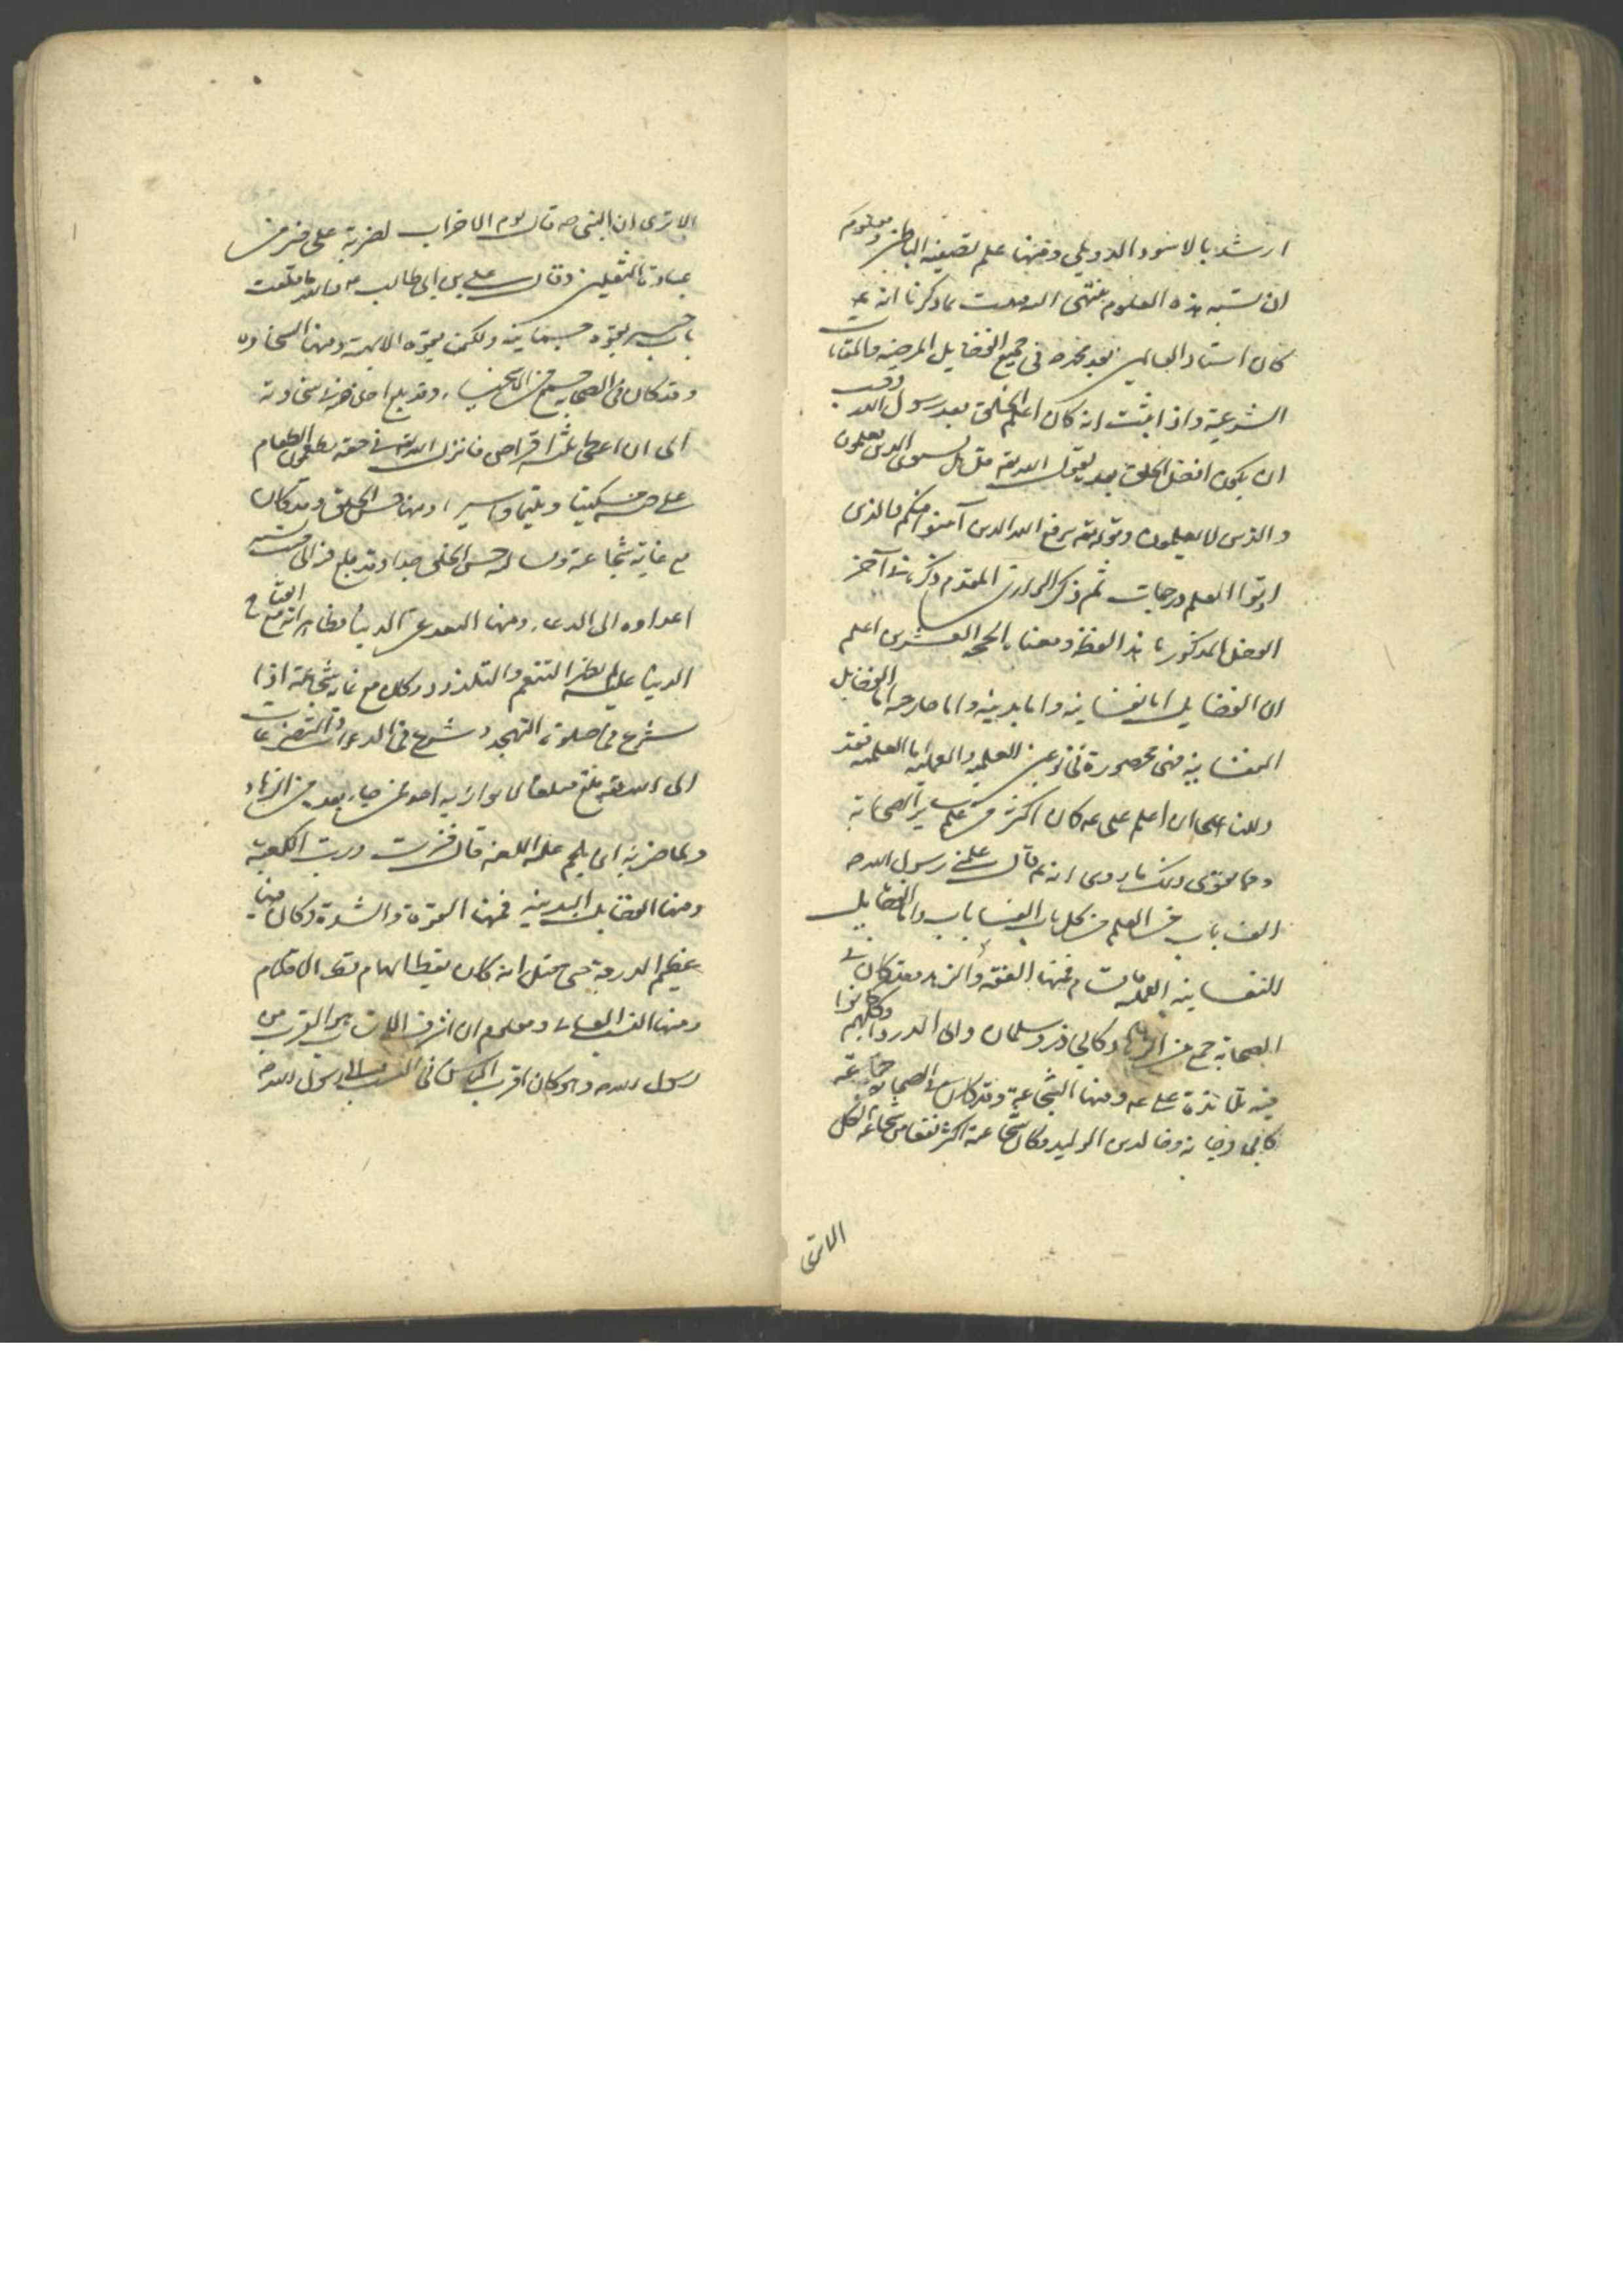 ارشد بالاسود الدويلي ومنها علم تصفية الباطن ومعلوم
ان نسبة هذه العلوم ينتهى اليه فثبت بما ذكرنا انه ع
كان استاد العالمين بعد محمد ص فى جميع الفضايل المرضية والمقامات
الشرعية واذا ثبت انه كان اعلم الخلق بعد رسول الله وجب
ان يكون افضل الخلق بعده لقوله تعه قل هل يستوى الذين يعلمون
والذين لا يعلمون وقوله تعه يرفع الله الذين آمنوا منكم والذين
اوتوا العلم درجات ثم ذكر الرازى المقدم ذكره فى آخر
الفصل المذكور ما هذا لفظه ومعناه الحجة العشرين اعلم
ان الفضايل اما نفسانية واما بدنية واما خارجه اما الفضايل
النفسانية فهى محصورة فى نوعين العلمية والعملية اما العلمية فقد
دللنا على ان اعلم على عه كان اكثر من علم ساير الصحابة
ومما يقوى ذلك ما روى انه عم قال علمنى رسول الله ص
الف باب من العلم من كل باب الف باب واما الفضايل
النفسانية العملية فاقسام فمنها العفة والزهد فقد كان فى
الصحابة جمع من الزهاد كابي ذر وسلمان وابى الدرداء وكلهم كانوا
فيه تلامذة على عه ومنها الشجاعة وقد كان فى الصحابة جماعة
كابى دجانه وخالد بن الوليد وكان شجاعته اكثر نفعا من شجاعة الكل
الاترى
الا ترى ان النبى ص قال يوم الاحزاب لضربة على خير من
عبادة الثقلين وقال على بن ابى طالب ع والله ما قلعت
باب خيبر بقوة جسمانية ولكن بقوة الالهية ومنها السخاوه
وقد كان فى الصحابه جمع من الاسخياء وقد بلغ اخلاصه فى سخاوته
الى ان اعطى ثلثة اقراص فانزل الله تعه فى حقه يطعمون الطعام
على حبه مسكينا ويتيما واسيرا ومنها حسن الخلق وقد كان
مع غاية شجاعته وبسالته حسن الخلق جدا وقد بلغ فيه الى حيث نسبه
اعداوه الى الدعابة ومنها البعد عن الدنيا فظاهر انه مع انفتاح
الدنيا عليه لم يظهر التنعم والتلذذ وكان مع غاية شجاعته اذا
شرع فى صلوة التهجد وشرع فى الدعوات والتضرعات
الى الله تعه بلغ مبلغا لا يوازيه احد ممن جاء بعده من الزهاد
ولما ضربه ابن ملجم عليه اللعنه قال فزت ورب الكعبة
ومنها الفضايل البدنيه فمنها القوة والشدة وكان فيها
عظيم الدرجة حتى قيل انه كان يقط الهام قط الاقلام
ومنها النسب العالى ومعلوم ان اشرف الانساب هو القرب من
رسول الله ص وهو كان اقرب الناس فى النسب الى رسول الله ص